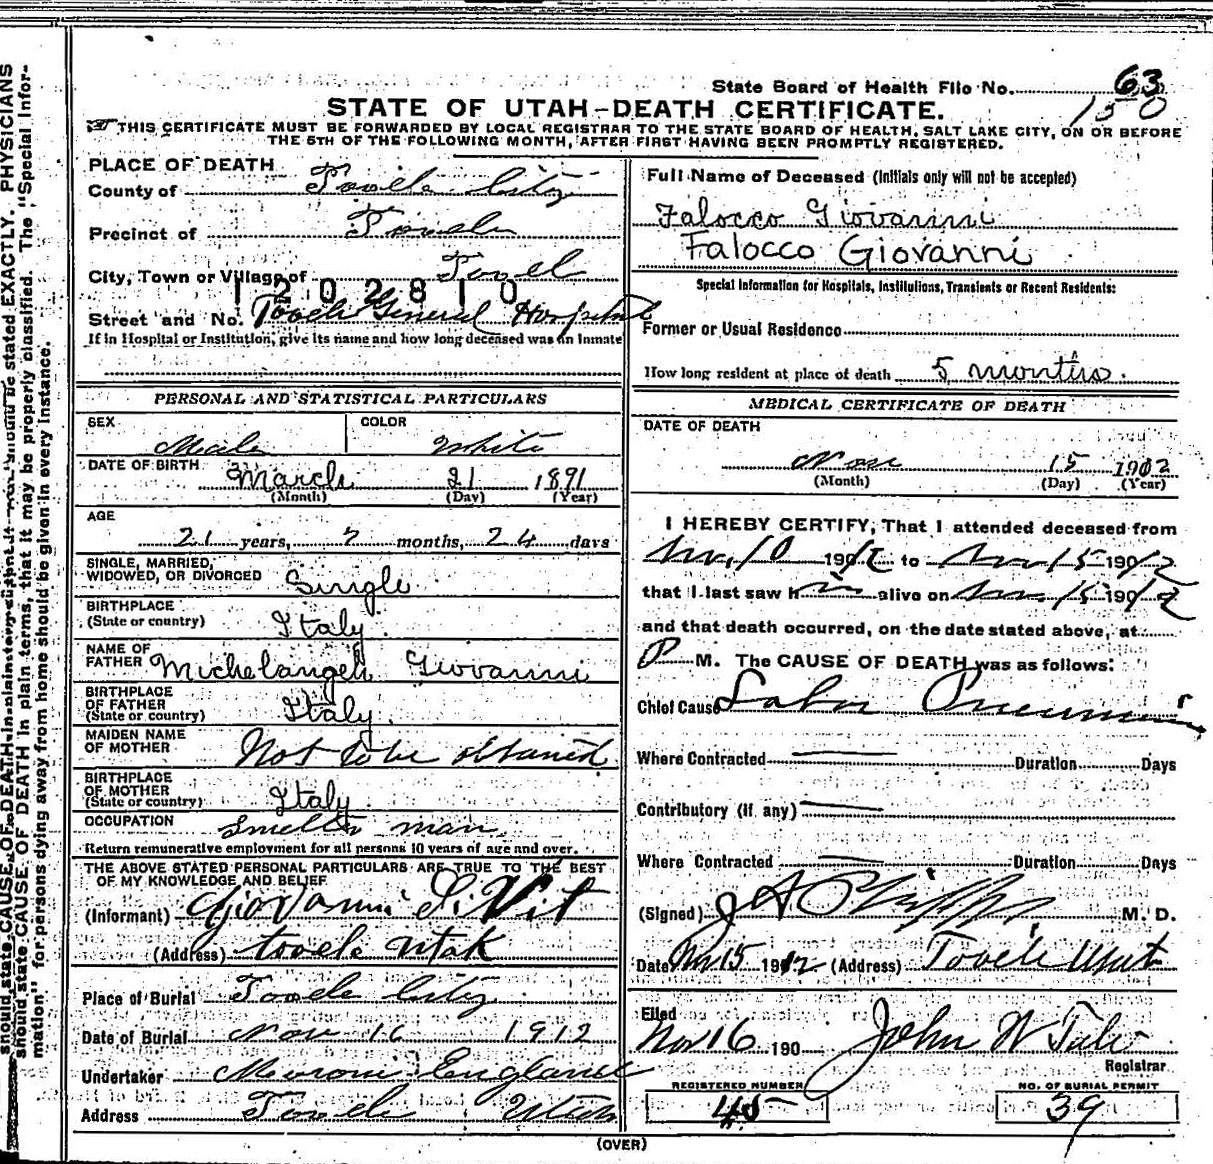 State Board of Health File No. 63
150
STATE OF UTAH—DEATH CERTIFICATE.
THIS CERTIFICATE MUST BE FORWARDED BY LOCAL REGISTRAR TO THE STATE BOARD OF HEALTH, SALT LAKE CITY, ON OR BEFORE
THE 5TH OF THE FOLLOWING MONTH, AFTER FIRST HAVING BEEN PROMPTLY REGISTERED.
PLACE OF DEATH
County of Tooele City
Precinct of Tooele
City, Town or Village of Tooel
1202810
Street and No. Tooele General Hospital
If in Hospital or Institution, give its name and how long deceased was an inmate
PERSONAL AND STATISTICAL PARTICULARS
SEX Male COLOR White
DATE OF BIRTH March 21 1891
(Month) (Day) (Year)
AGE
21 years, 7 months, 24 days
SINGLE, MARRIED,
WIDOWED, OR DIVORCED Single
BIRTHPLACE
(State or country) Italy
NAME OF
FATHER Michelangelo Giovanni
BIRTHPLACE
OF FATHER
(State or country) Italy
MAIDEN NAME
OF MOTHER Not to be obtained
BIRTHPLACE
OF MOTHER
(State or country) Italy
OCCUPATION Smelter man
Return remunerative employment for all persons 10 years of age and over.
THE ABOVE STATED PERSONAL PARTICULARS ARE TRUE TO THE BEST
OF MY KNOWLEDGE AND BELIEF
(Informant) Giovanni
(Address) tooele Utah
Place of Burial Tooele City
Date of Burial Nov 16 1912
Undertaker Moroni England
Address Tooele Utah
Full Name of Deceased (Initials only will not be accepted)
Falocco Giovanni
Falocco Giovanni
Special Information for Hospitals, Institutions, Transients or Recent Residents:
Former or Usual Residence
How long resident at place of death 5 months.
MEDICAL CERTIFICATE OF DEATH
DATE OF DEATH
Nov 15 1912
(Month) (Day) (Year)
I HEREBY CERTIFY, That I attended deceased from
Nov 10 1912 to Nov 15 1912
that I last saw him alive on Nov 15 1912
and that death occurred, on the date stated above, at
P M. The CAUSE OF DEATH was as follows:
Chief Cause Lobar Pneumonia
Where Contracted Duration Days
Contributory (if any)
Where Contracted Duration Days
(Signed) J A Phipps M. D.
Date Nov 15 1912 (Address) Tooele Utah
Filed
Nov 16 190 John W Tate
Registrar
REGISTERED NUMBER
45
NO. OF BURIAL PERMIT
39
(OVER)
should state CAUSE OF DEATH in plain terms, that it may be properly classified. The "Special Infor-
mation" for persons dying away from home should be given in every instance.